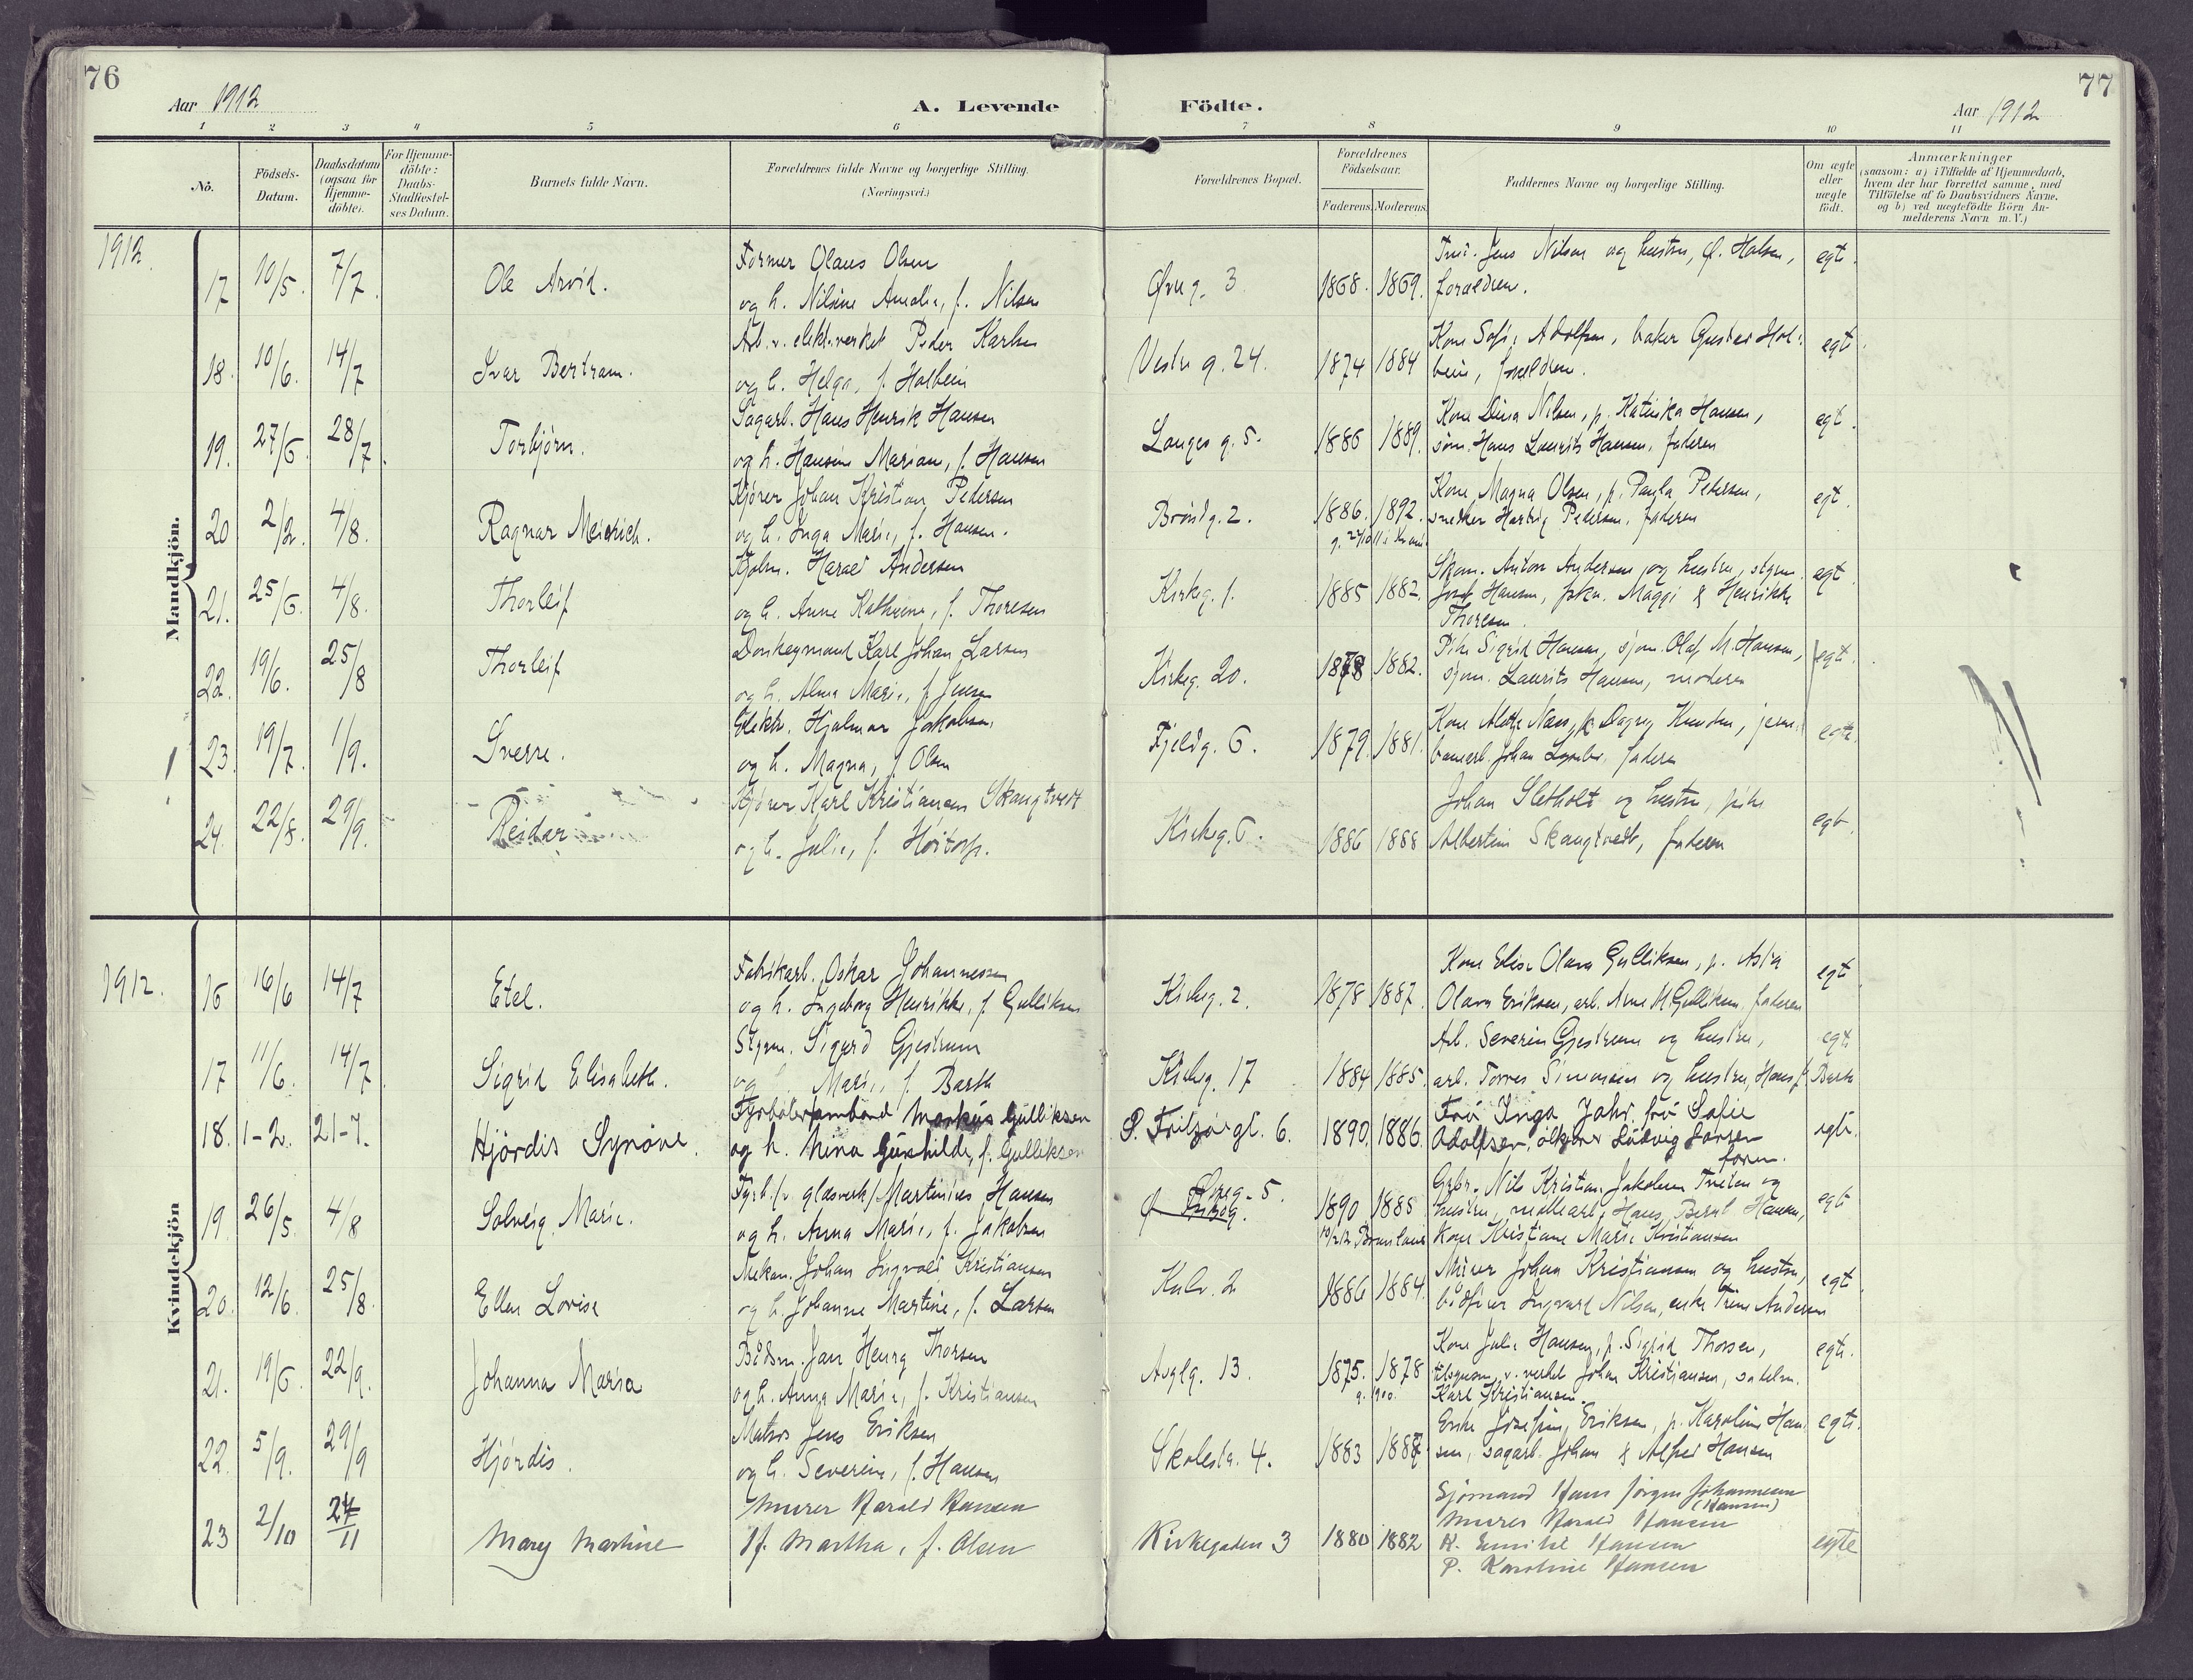 76
Aar 1912
A. Levende Födte.
Aar 1912
77
1 2 3 4 5 6 7 8 9 10 11
Nö.
Födsels-Datum.
Daabsdatum (ogsaa for Hjemme-döbte).
For Hjemme-döbte: Daabs-Stadfæstel-ses Datum.
Barnets fulde Navn.
Forældrenes fulde Navne og borgerlige Stilling. (Næringsvei.)
Forældrenes Bopæl.
Forældrenes Födselsaar.
Faderens. Moderens.
Faddernes Navne og borgerlige Stilling.
Om ægte eller uægte födt.
Anmærkninger
(saasom: a) i Tilfælde af Hjemmedaab, hvem der har forrettet samme, med Tilföielse af to Daabsvidners Navne, og b) ved uægtefödte Börn An-melderens Navn m. V.)
Mandkjön.
1912.
17 10/5. 7/7. Ole Arvid. Former Olaus Olsen
og h. Nilsine Amalie, f. Nilsen Øvreg. 3 1868. 1869. Jens Nilsen og hustru, Halsen, forældren. egte.
18. 10/6. 14/7 Ivar Bertram. Arb. v. elektr.verket Peder Karlsen
og h. Helga, f. Holbein Vestre g. 24. 1874 1884 Kone Sofie Adolfsen, baker Gustav Hol-
bein, forældrene. egt.
19. 27/6. 28/7. Torbjørn. Sagarb. Hans Henrik Hansen
og h. Hansine Marian, f. Hansen Langes g. 5. 1886 1889. Kone Dina Nilsen, p. Katinka Hansen,
søm. Hans Laurits Hansen, faderen egt.
20 2/2. 4/8. Ragnar Meidrich. Kjører Johan Kristian Pedersen
og h. Inga Marie, f. Hansen. Brøndg. 2. 1886. 1892. Kone Magna Olsen, p. Paula Petersen,
snedker Hartvig Pedersen, faderen egt.
21. 25/6. 4/8. Thorleif Harald Andersen
og h. Anne Kathrine, f. Thoresen Kirkeg. 1. 1885 1882. Skom. Anton Andersen og hustru, styrm.
Josef Hansen, Maggi & Henrikke
Thoresen. egt.
22. 19/6. 25/8 Thorleif Donkeymand Karl Johan Larsen
og h. Alma Marie, f. Jensen Kirkeg. 20. 1878 1882. Pike Sigrid Hansen, sjøm. Olaf M. Hansen,
sjøm. Laurits Hansen, moderen egt.
23. 19/7. 1/9. Sverre. Elektr. Hjalmar Jakobsen
og h. Magna, f. Olsen Fjeldg. 6. 1879. 1881. Kone Alethe Næss, p. Dagny Knudsen, jern-
banearb. Johan faderen egte.
24. 22/8. 29/9. Reidar Kjører Karl Kristiansen Skaugtvedt
og h. Julie, f. Høitorp. Kirkeg. 6. 1886 1888 Johan Sletholt og hustru, pike
Albertine Skaugtvedt, faderen egt.
Kvindekjön
1912.
16 16/6 14/7 Etel. Fabrikarb. Oskar Johannessen
og h. Ingeborg Henrikke, f. Gulliksen Kirkeg. 2. 1878 1887. Kone Elise Olava Gulliksen, p. Asta
Olava Eriksen, arb. Arne M. Gulliksen, faderen egt.
17 11/6. 14/7 Sigrid Elisabeth. Styrm. Sigurd Gjestrum
og Marie, f. Barth Kirkeg. 17 1884 1885. Arb. Severin Gjestrum og hustru,
arb. Simonsen og hustru, Hans f. Barth egt.
18. 1-2. 21-7. Hjördis Synöve. Fyrböter Markus Gulliksen
og h. Nina Gunhilde, f. Gulliksen S. Fritzøegt. 6. 1890. 1886. Frú Inga Jahr, frú Sofie
Adolfsen, ölkjører Ludvig Larsen
egte.
19. 26/5. 4/8 Solveig Marie. Fyrb. (v. glasverk) Martinius Hansen
og h. Anna Marie, f. Jakobsen Øreg. 5. 1890 1885 Grbr. Nils Kristian Jakobsen Tveten og
hustru, møllearb. Hans Bernt Hansen,
Kone Kristiane Marie Kristiansen egt
20. 12/6. 25/8. Ellen Lovise Mekan. Johan Ingvald Kristiansen
og h. Johanne Martine, f. Larsen Kalv. 2 1886 1884. Murer Johan Kristiansen og hustru,
bödker Ingvard Nilsen, enke Trine Andersen egt
21. 19/6. 22/9. Johanna Maria Bådsm. Jan Henry Thorsen
og h. Anna Marie, f. Kristiansen 13. 1875. 1878 Kone Julie Hansen, p. Sigrid Thorsen,
v. verket Johan Kristiansen, sadelm.
Karl Kristiansen egte.
22. 5/9. 29/9 Hjördis. Matros Jens Eriksen
og h. Severine, f. Hansen Skolestr. 4. 1883 1887 Enke Josefine Eriksen, p. Karoline Han-
sen, sagarb. Johan & Alfred Hansen egte.
23 2/10 24/11 Mary Martine Murer Harald Hansen
Hf. Martha, f. Olsen Kirkegaden 3 1880 1882 Sjömand Hans Jörgen Johannesen
(Hansen)
Murer Harald Hansen
K. Emilie Hansen
P. Karoline Hansen egte